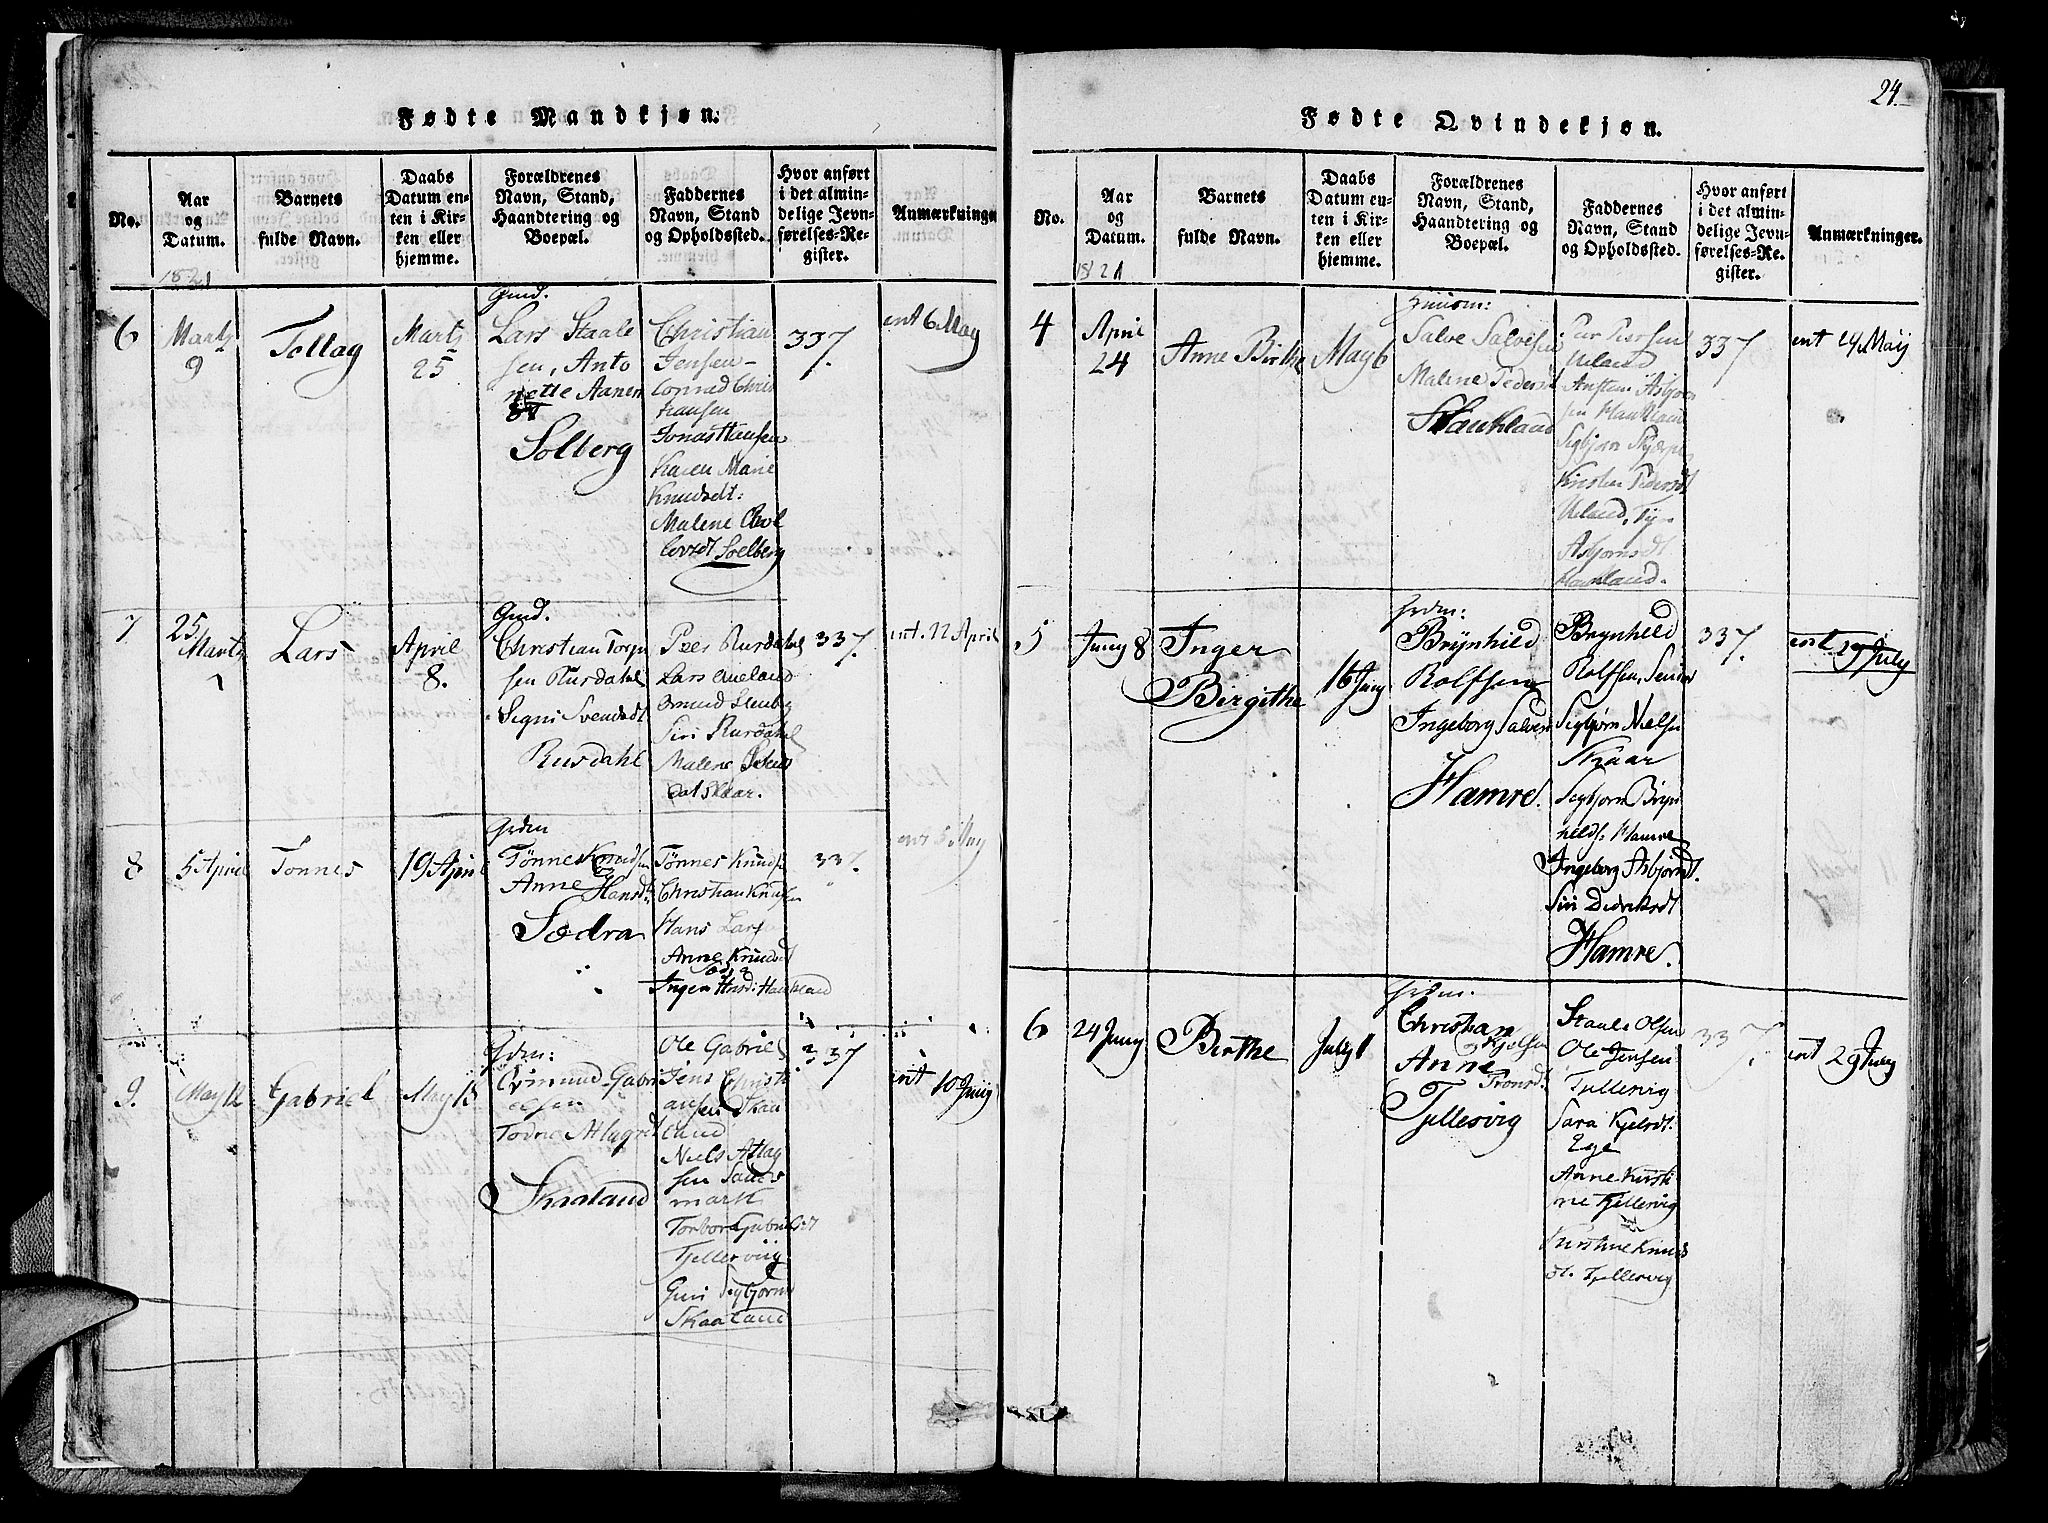 24.
Fødte Mandkjøn.
No.
Aar
og
Datum.
Barnets
fulde Navn.
Daabs
Datum en-
ten i Kir-
ken eller
hjemme.
Forældrenes
Navn, Stand,
Haandtering og
Boepæl.
Faddernes
Navn, Stand
og Opholdssted.
Hvor anført
i det almin-
delige Jevn-
førelses-Re-
gister.
Anmærkninger
1821
6
Martz
9
Tollag
Martz
25
Gmd.
Lars Staale
sen, Anto
nette Aanen
dt
Solberg
Christian
Jensen
Conrad Chris
tiansen
Jonas Hansen
Karen Marie
Knudsdt:
Malene
Soelberg
337
int 6 May
7
25
Martz
Lars
April
8.
Gmd.
Christian Torje
sen Rusdahl
Segni Svendsdt
Rusdahl
Peer Rusdahl
Lars Aueland
Omund Steenb
Siri Rusdahl
Malene
Skaar.
337.
int. 22 April
8
5 April
Tønnes
19 April
Grdm
Tønnes Knudsen
Anne Hansdt
Sædra
Tønnes Knuds
Christian Knudsen
Hans Lars
Anne Knudsdt
Inger Hansd: Haukland
337.
int 6 May
9.
May 12
Gabriel
May 13
Grdm:
Omund Gabri
elsen
Todne Atlagsd
Skaaland
Ole Gabriel
Jens Christi
ansen Skaa
land
Niels Atlag
sen Sandes
mark
Torbor Gabrielsdt
Tjellesviig
Guri Segbjørns
Skaaland
337
int 10 Juny
Fødte Qvindekjøn.
No.
Aar
og
Datum.
Barnets
fulde Navn.
Daabs
Datum en-
ten i Kir-
ken eller
hjemme.
Forældrenes
Navn, Stand,
Haandtering og
Boepæl.
Faddernes
Navn, Stand
og Opholdssted.
Hvor anført
i det almin-
delige Jevn-
førelses-Re-
gister.
Anmærkninger.
1821
4
April
24
Anne Birthe
May 6
Huusm:
Salve Salvesen
Malene Pedersd
Haukland
Peer Peersen
Ueland
Asbjørn
sen Haukland
Segbjørn Skjerpe
Kirsten Pedersdt
Ueland,
Asbjørnsdt
Haukland.
337
int 24 Maij
5
Juny 8
Inger
Birgithe
16 Juny
Grdm:
Brÿnhild
Rolfsen
Ingeborg Salves
Hamre.
Brynhild
Rolfsen, Senior
Segbjørn Nielsen
Skaar
Segbjørn Bryn
hilds: Hamre
Ingeborg Asbjørnsdt.
Siri Didriksdt
Hamre.
337.
int 29 July
6
24 Juny
Birthe
July 1
Grdm.
Christian
Kjølsen
Anne
Tronsdt.
Tjellesvig
Staale Olsen
Ole Jensen
Tjellesvig
Sara Kjelsdt.
Ege
Anne Kirsti
ne Tjellesvig
Kirstine Knuds
dt. Tjellesvig
337.
int 29 July